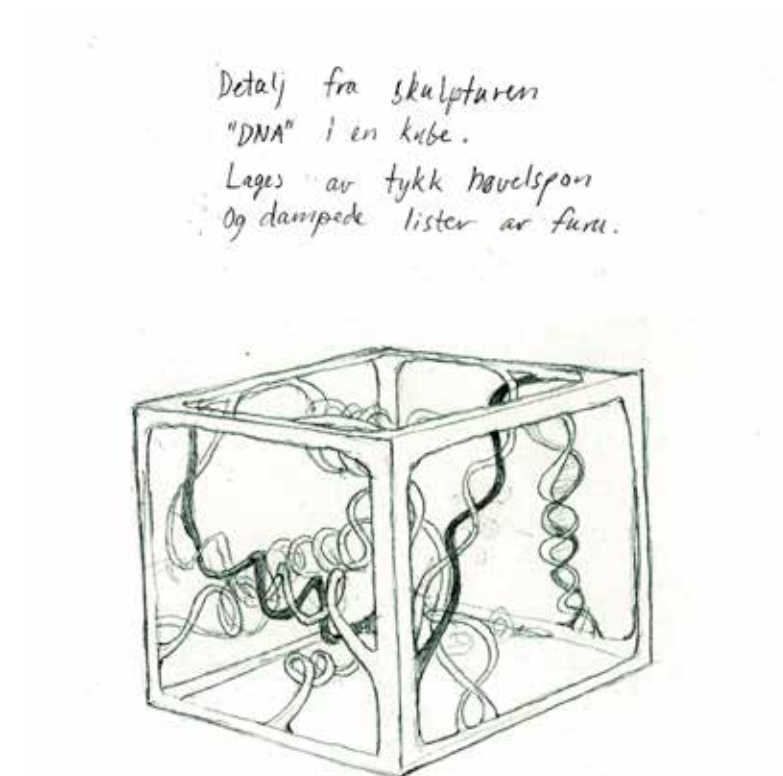 Detalj fra skulpturen
"DNA" i en kube.
Lages av tykk høvelspon
Og dampede lister av furu.